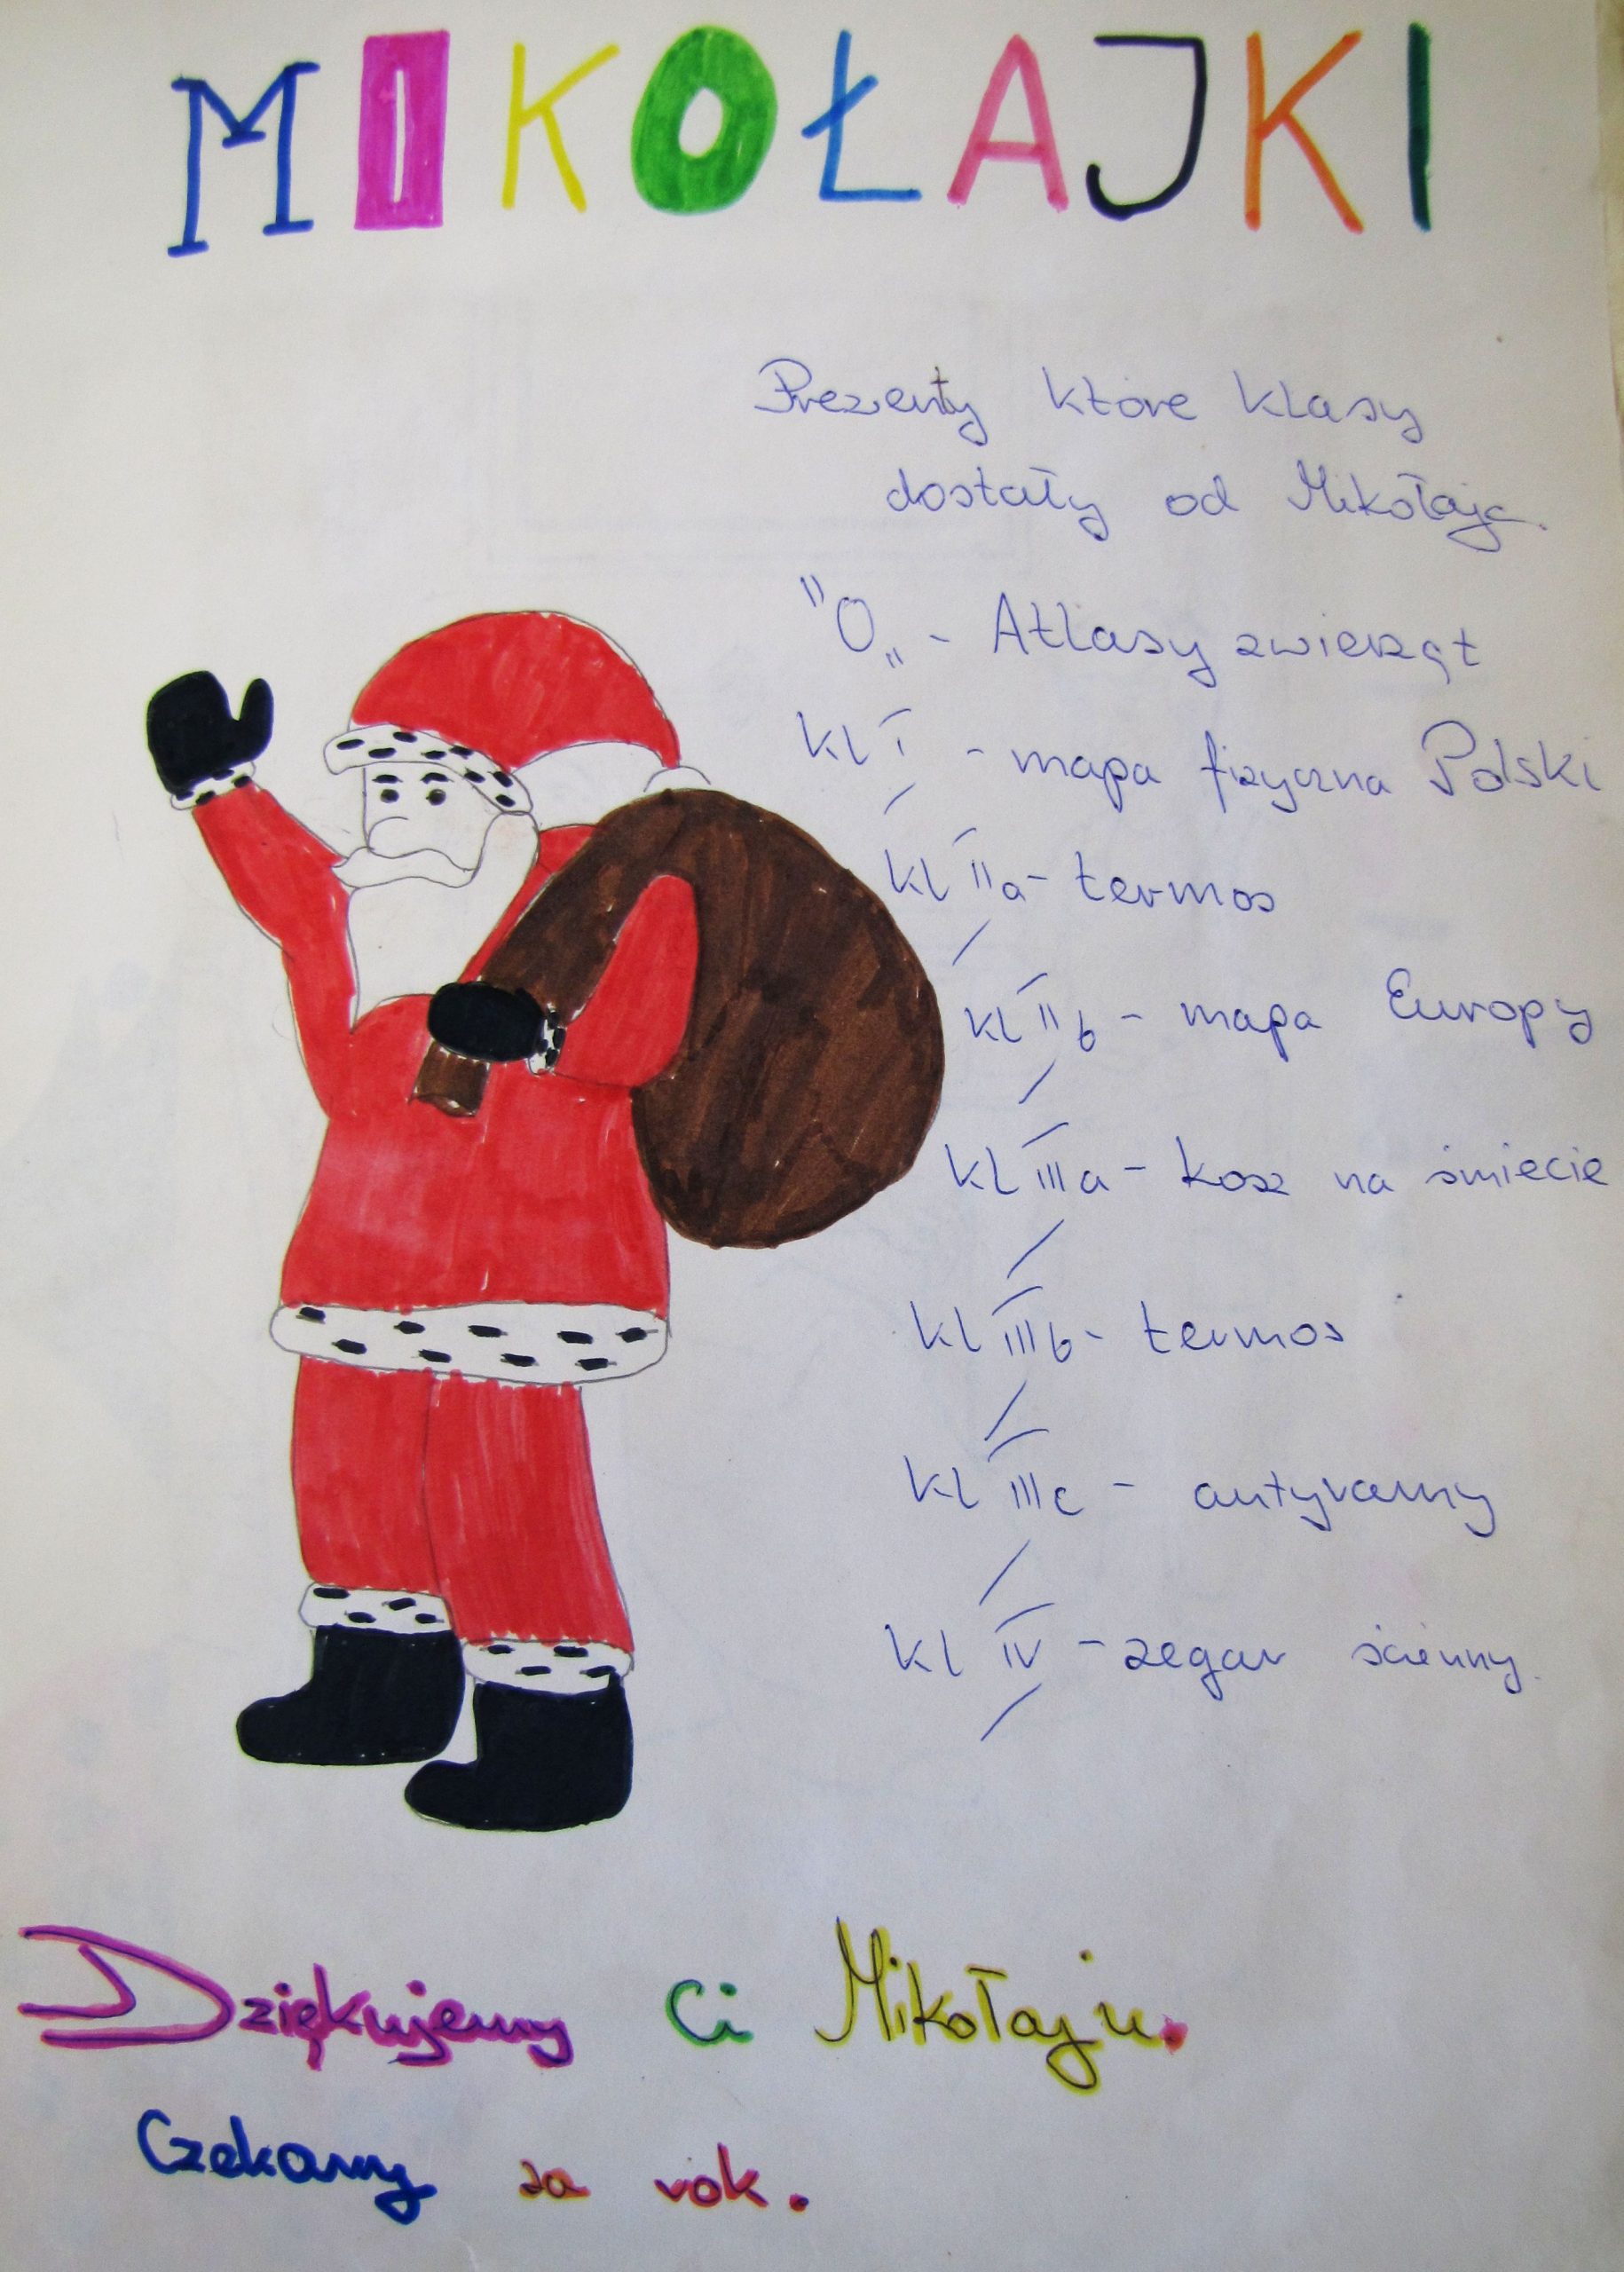 MIKOŁAJKI
Prezenty które klasy
dostały od Mikołaja.
"O„ - Atlasy zwierząt
kl I - mapa fizyczna Polski
kl IIa - termos
kl IIb - mapa Europy
kl IIIa - kosz na śmiecie
kl IIIb - termos
kl IIIc - antyramy
kl IV - zegar ścienny.
Dziękujemy Ci Mikołaju.
Czekamy za rok.